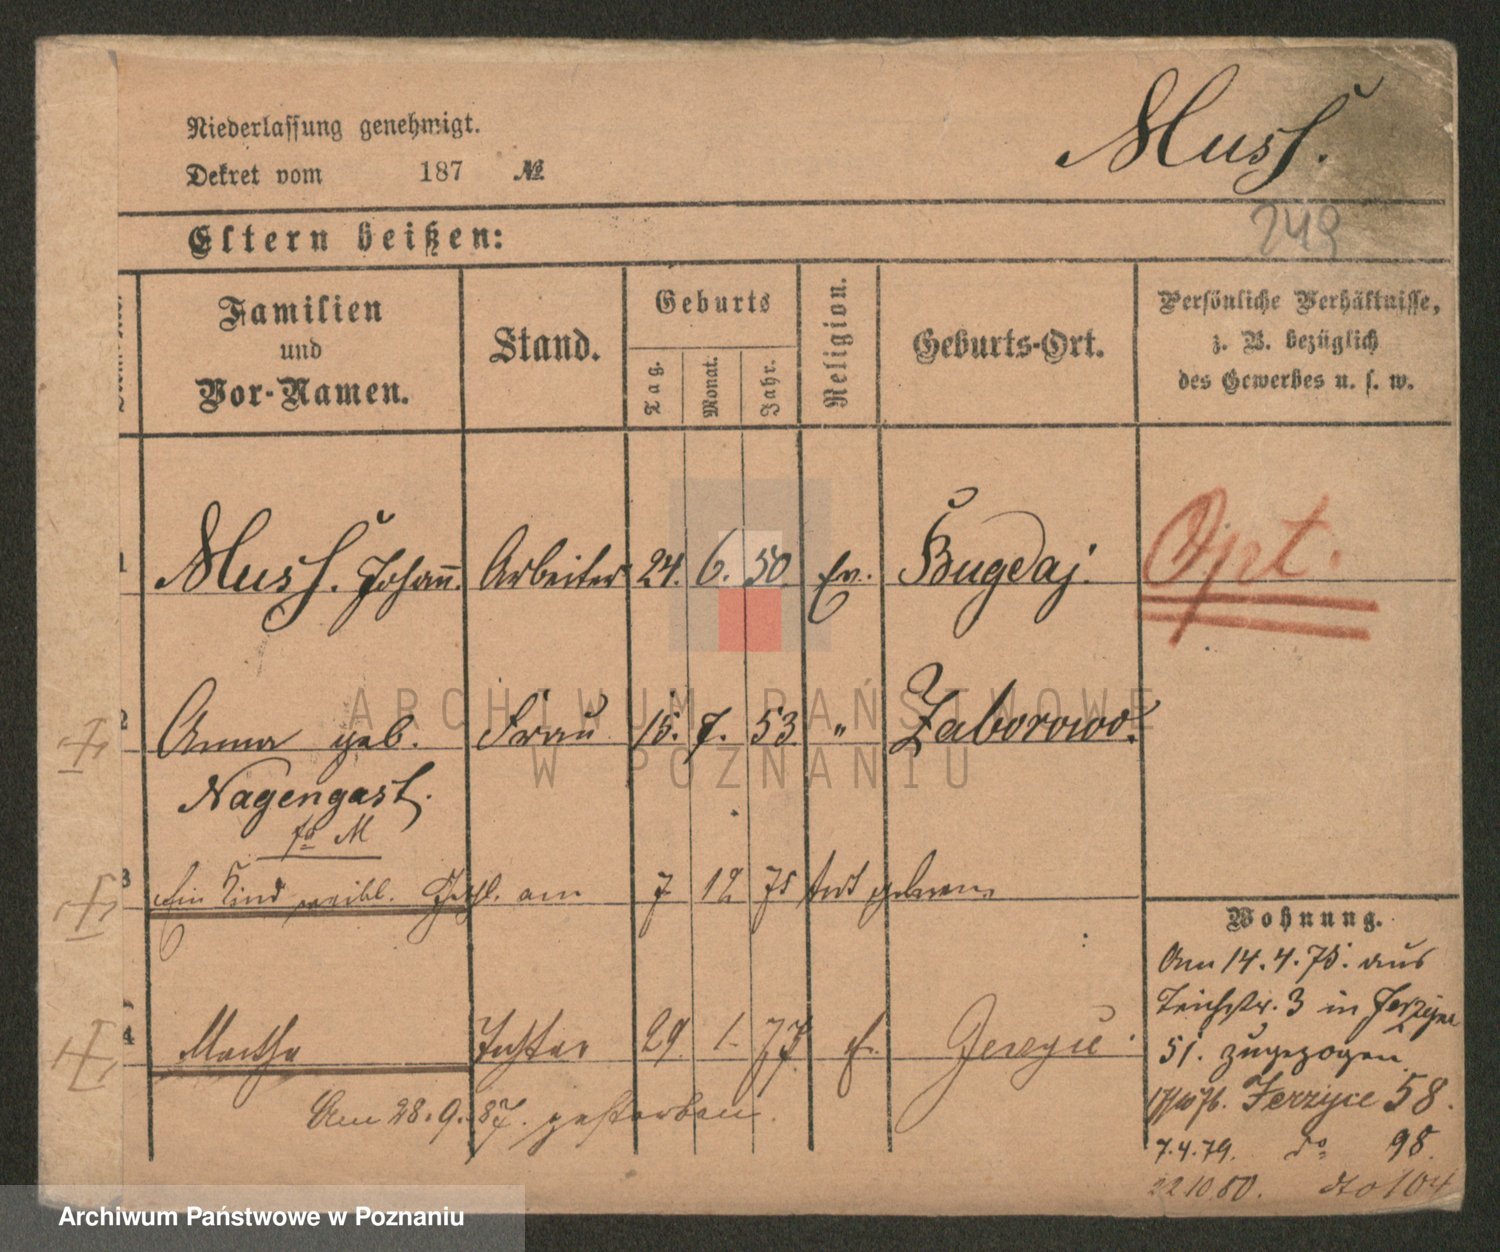 Niederlassung genehmigt.
Dekret vom 187 №
Muss.
249
Eltern heißen:
Familien
und
Vor-Namen.
Stand.
Geburts
Tag.
Monat.
Jahr.
Religion.
Geburts-Ort.
Persönliche Verhältnisse,
z. B. bezüglich
des Gewerbes u. s. w.
1 Muss. Johann. Arbeiter 24. 6. 50. Ev. Bugdaj.
2 Anna geb. Frau 15. 7. 53. " Zaborowo.
Nagengast.
3 Ein Kind weibl. Geschl. am 7 12 75 tot geboren
4 Martha Tochter 29. 1. 77 ev. Jerzyce
Am 28.9.87. gestorben.
Wohnung.
Am 14.4.75. aus
Teichstr. 3 in Jerzyce
51. zugezogen
Jerzyce 58.
7.4.79. do 98.
22.10.80. dto 104
ARCHIWUM PAŃSTWOWE
W POZNANIU
Archiwum Państwowe w Poznaniu